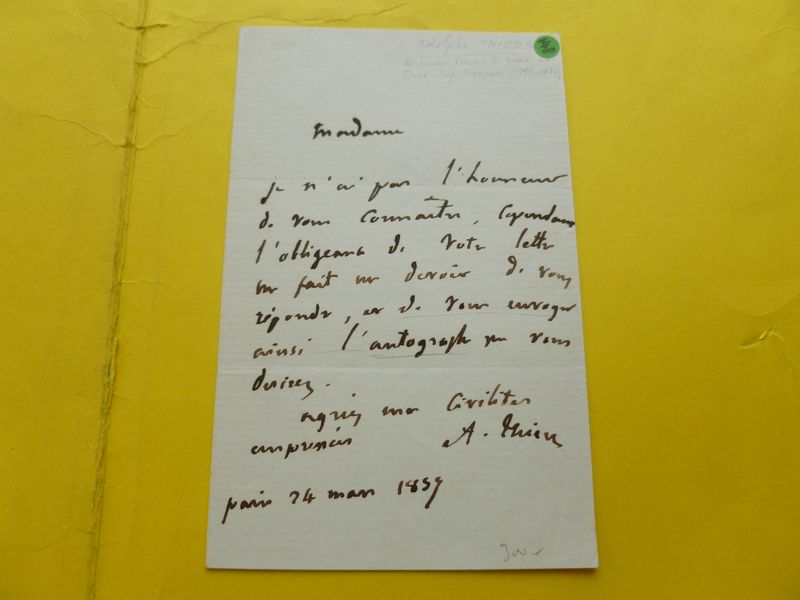 Adolphe THIERS
Madame
je n'ai pas l'honneur
de vous connaître, cependant
l'obligeance de votre lettre
me fait un devoir de vous
répondre, et de vous envoyer
ainsi l'autographe que vous
desirez.
agréez mes civilités
empressées A. Thiers
paris 24 mars 1859
300